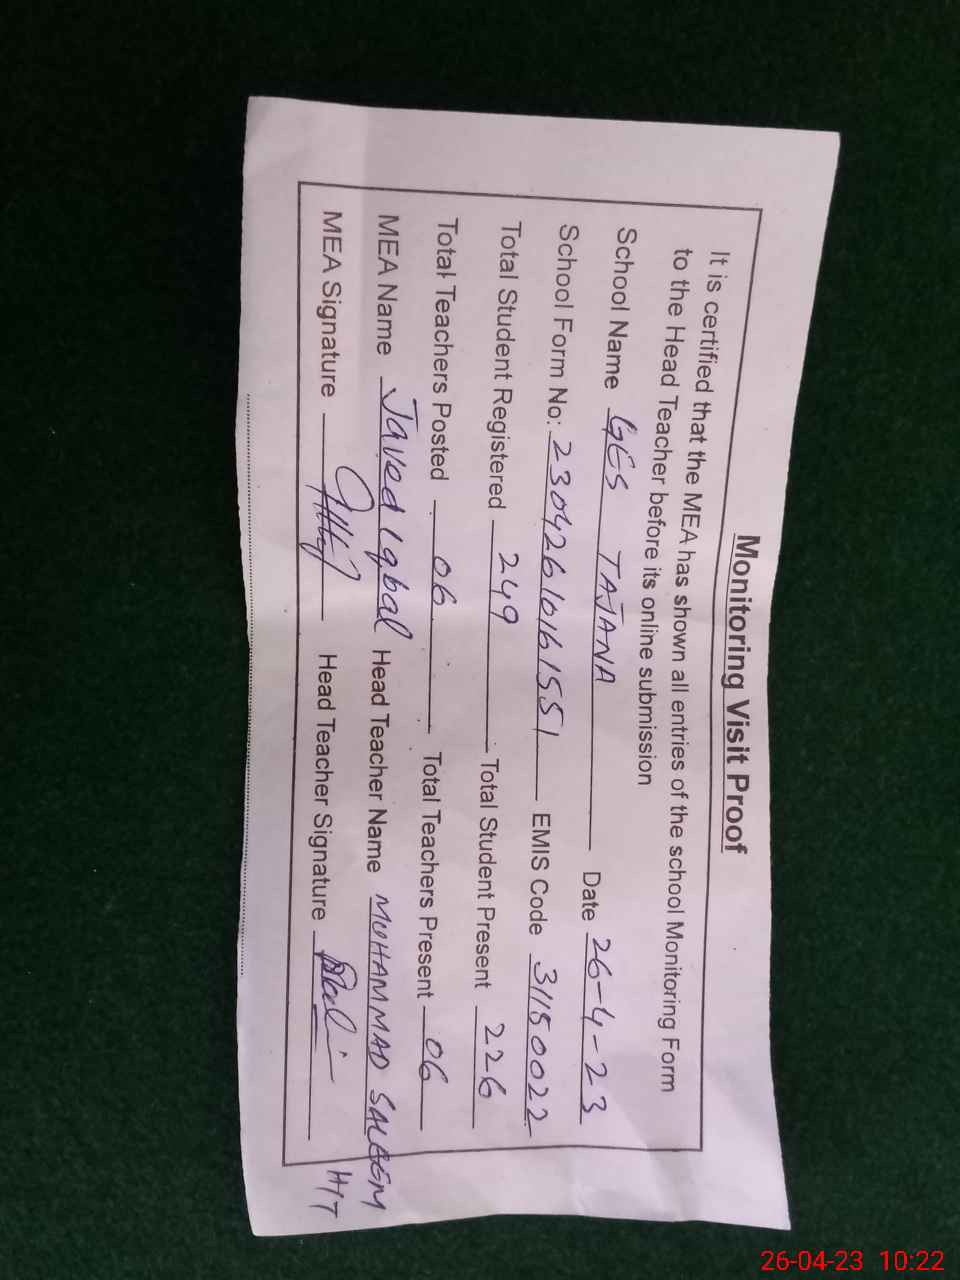 Monitoring Visit Proof
It is certified that the MEA has shown all entries of the school Monitoring Form
to the Head Teacher before its online submission
School Name GES TAJANA Date 26-4-23
School Form No: 23042610161551 EMIS Code 31150022
Total Student Registered 249 Total Student Present 226
Total Teachers Posted 06 Total Teachers Present 06
MEA Name Javed Iqbal Head Teacher Name MUHAMMAD SALEEM
MEA Signature Head Teacher Signature H/T
26-04-23 10:22